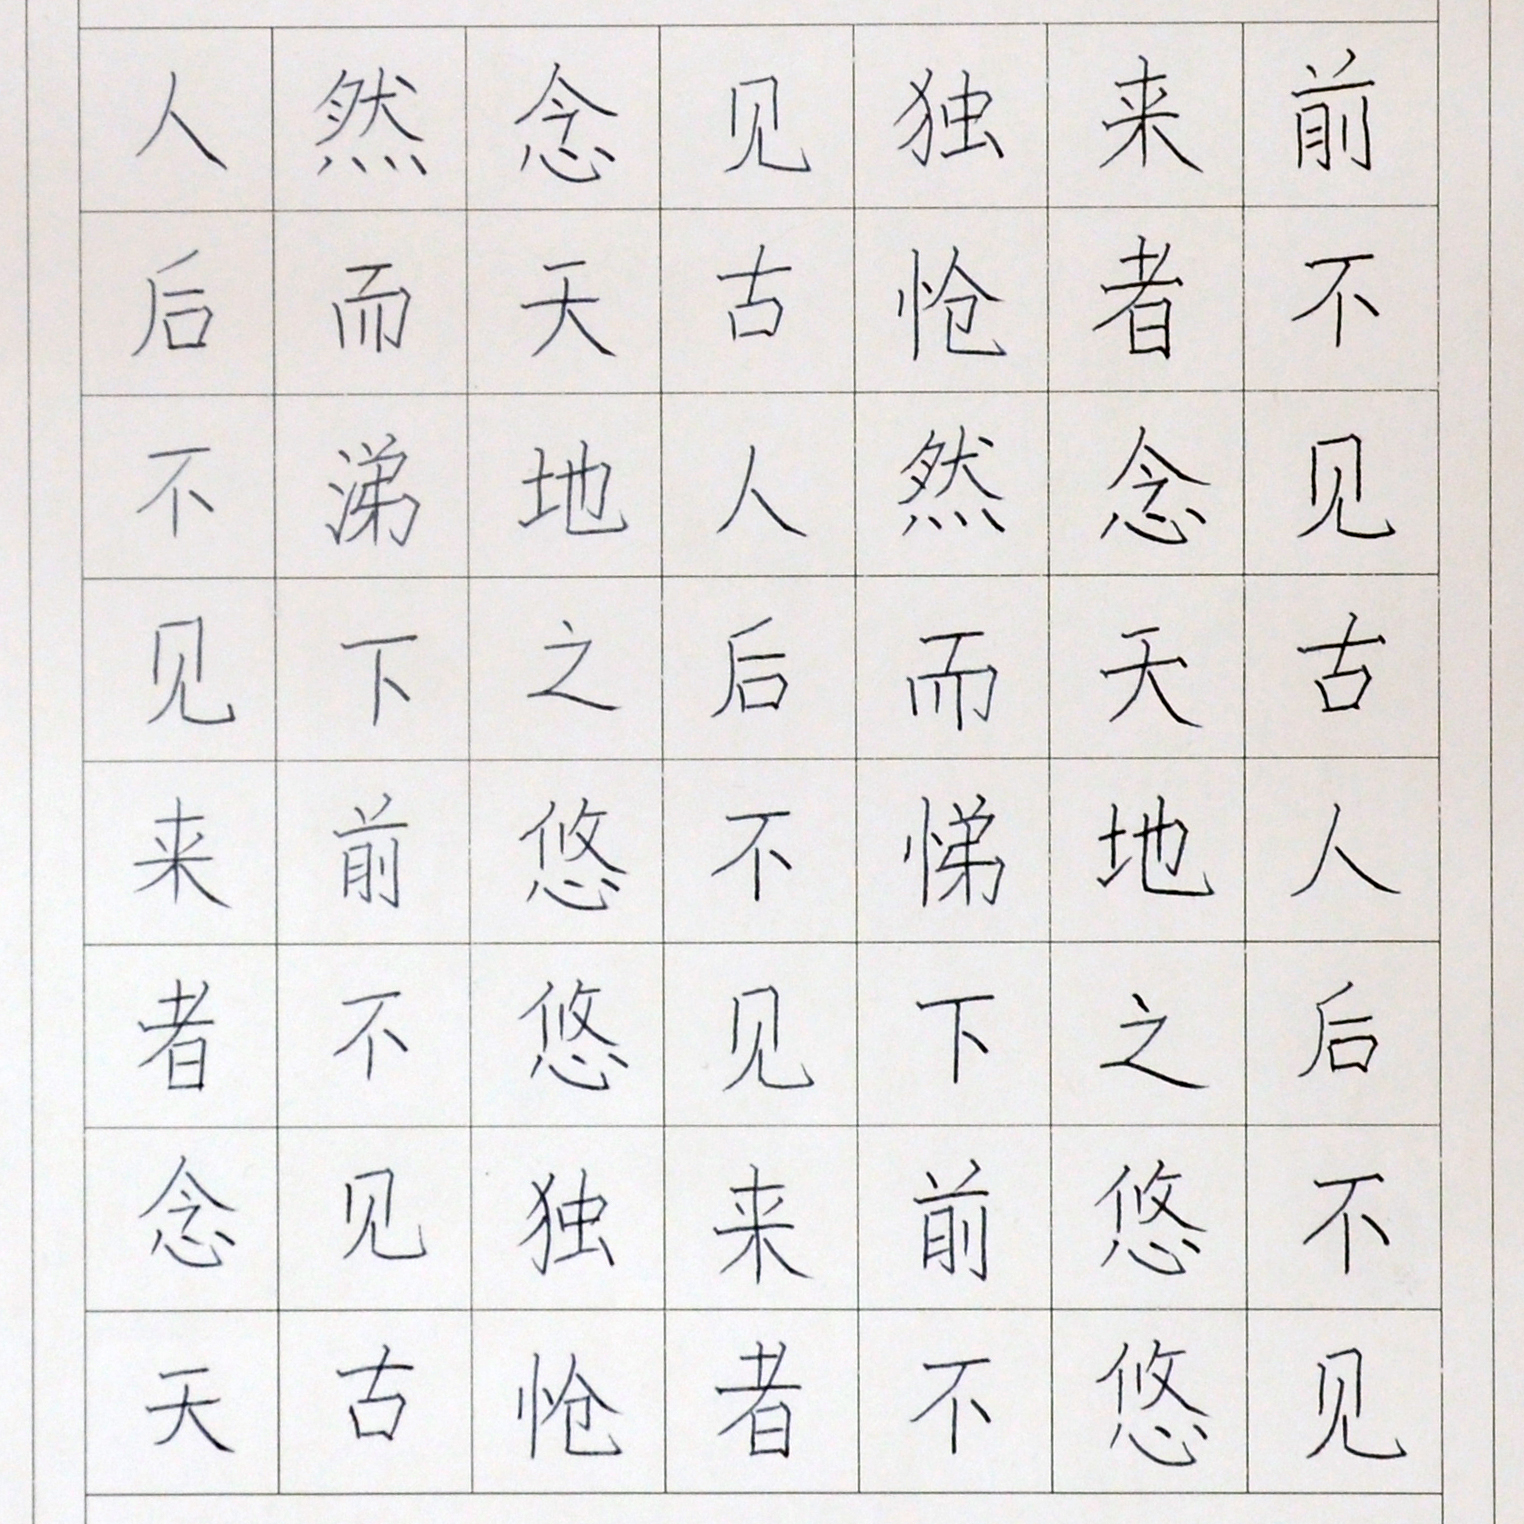 前不见古人后不见
来者念天地之悠悠
独怆然而悌下前不
见古人后不见来者
念天地之悠悠独怆
然而涕下前不见古
人后不见来者念天